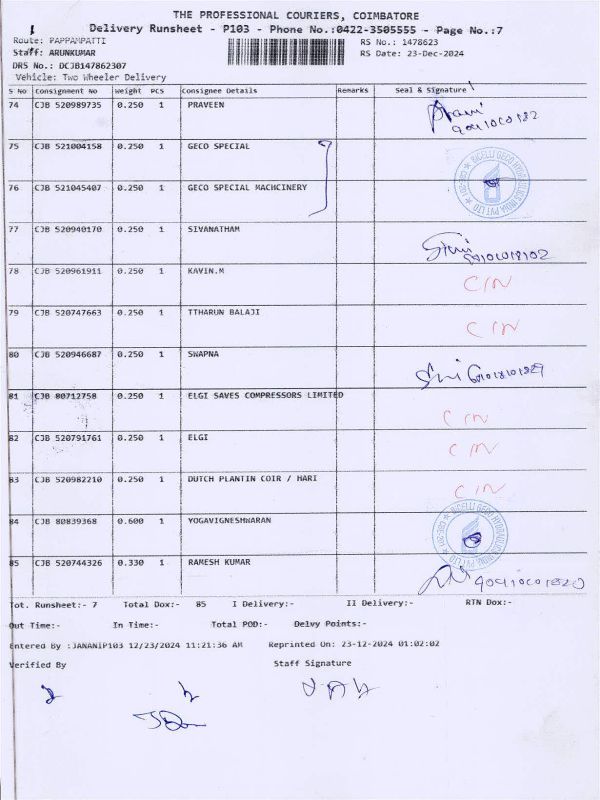 THE PROFESSIONAL COURIERS, COIMBATORE
Delivery Runsheet - P103 - Phone No.:0422-3505555 - Page No.:7
Route: PAPPAMPATTI
RS No.: 1478623
Staff: ARUNKUMAR
RS Date: 23-Dec-2024
DRS No.: DCJB147862307
Vehicle: Two Wheeler Delivery
S No Consignment No Weight PCS Consignee Details Remarks Seal & Signature
74 CJB 520989735 0.250 1 PRAVEEN
75 CJB 521004158 0.250 1 GECO SPECIAL
76 CJB 521045407 0.250 1 GECO SPECIAL MACHCINERY
77 CJB 520940170 0.250 1 SIVANATHAM
78 CJB 520961911 0.250 1 KAVIN.M CIN
79 CJB 520747663 0.250 1 TTHARUN BALAJI CIN
80 CJB 520946687 0.250 1 SWAPNA
81 CJB 80712758 0.250 1 ELGI SAVES COMPRESSORS LIMITED CIN
82 CJB 520791761 0.250 1 ELGI CIN
83 CJB 520982210 0.250 1 DUTCH PLANTIN COIR / HARI CIN
84 CJB 80839368 0.600 1 YOGAVIGNESHWARAN
85 CJB 520744326 0.330 1 RAMESH KUMAR
Tot. Runsheet:- 7 Total Dox:- 85 I Delivery:- II Delivery:- RTN Dox:-
Out Time:- In Time:- Total POD:- Delvy Points:-
Entered By :JANANIP103 12/23/2024 11:21:36 AM Reprinted On: 23-12-2024 01:02:02
Verified By Staff Signature